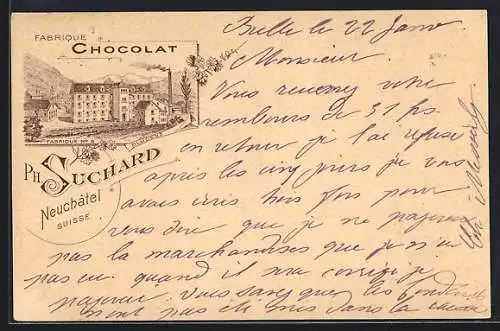 FABRIQUE
CHOCOLAT
FABRIQUE No 5
PH. SUCHARD
Neuchâtel
SUISSE
Bulle le 22 Janv
Monsieur
Vous recevrez votre
rembours de 31 frs.
en retour je l'ai refusé
après les cinq jours je vous
avais écris trois fois pour
vous dire que je ne payerai
pas la marchandises que je n'ai
pas eu quand il sera corrigé je
payerai Vous savez que les
n'ont pas été mis dans la caisse